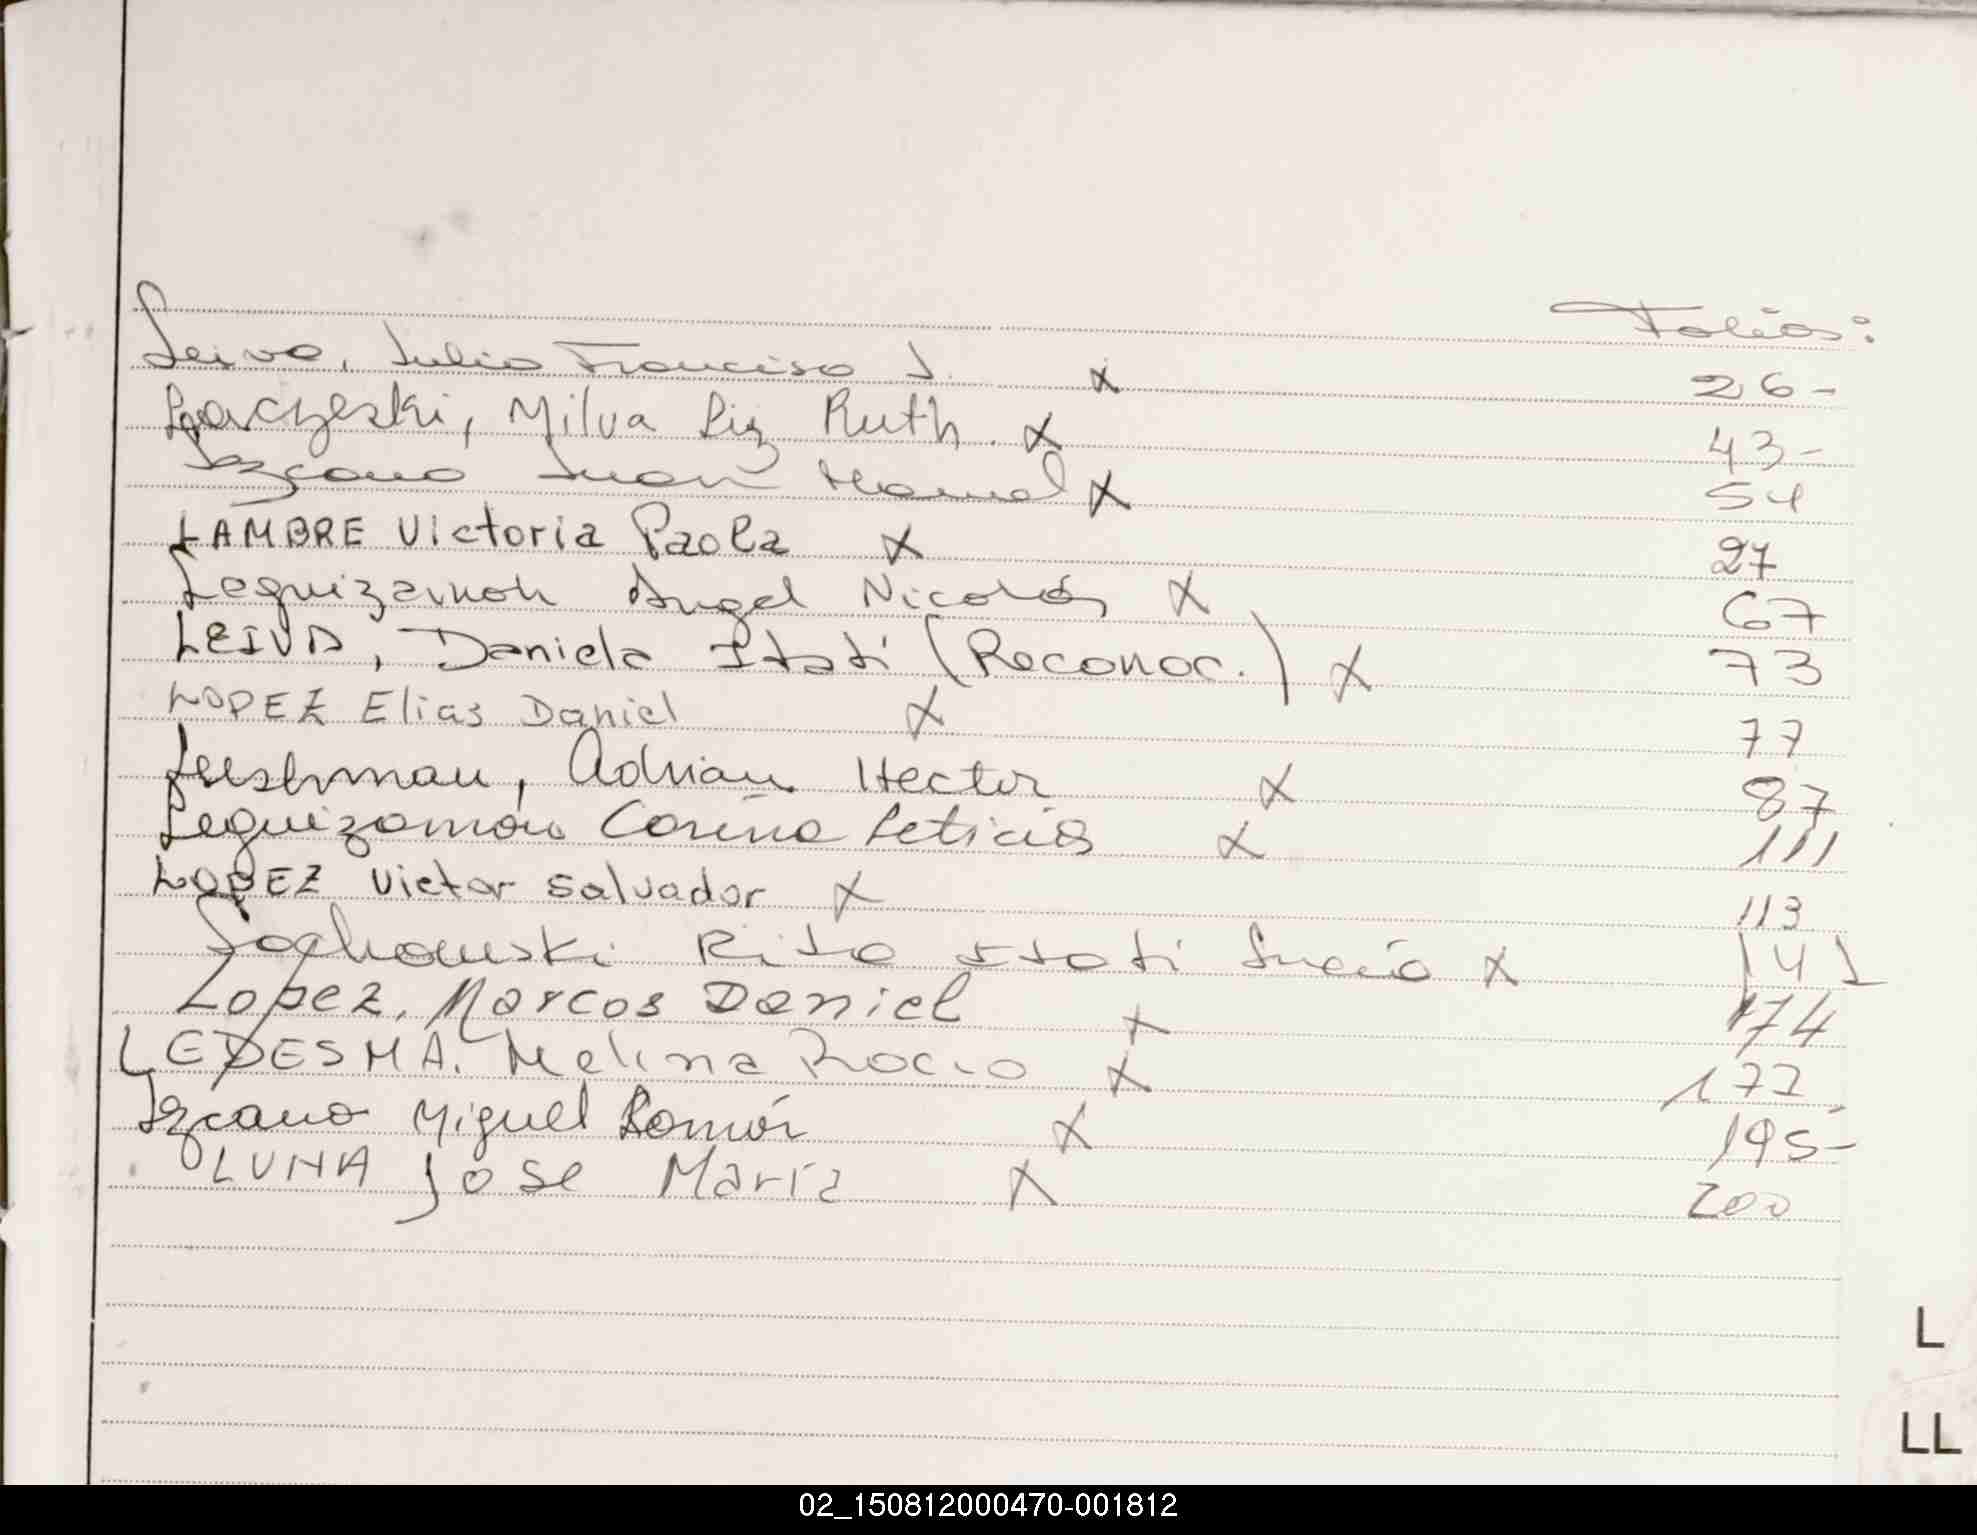 Folios:
Leiva, Julio Francisco J. x 26-
Lparczeski, Milva Liz Ruth. x 43-
Lezcano Juan Manuel x 54
LAMBRE Victoria Paola x 27
Leguizamon Angel Nicolás x 67
LEIVA, Daniela Itatí (Reconoc.) x 73
LOPEZ Elias Daniel x 77
Leeshman, Adrian Hector x 87
Leguizamón Corina Leticia x 111
LOPEZ Victor Salvador x 113
Lachowski Rita Itati Lucía x 141
Lopez, Marcos Daniel x 174
LEDESMA. Melina Rocio x 177
Lezcano Miguel Román x 195-
LUNA Jose Maria x 200
L
LL
02_150812000470-001812